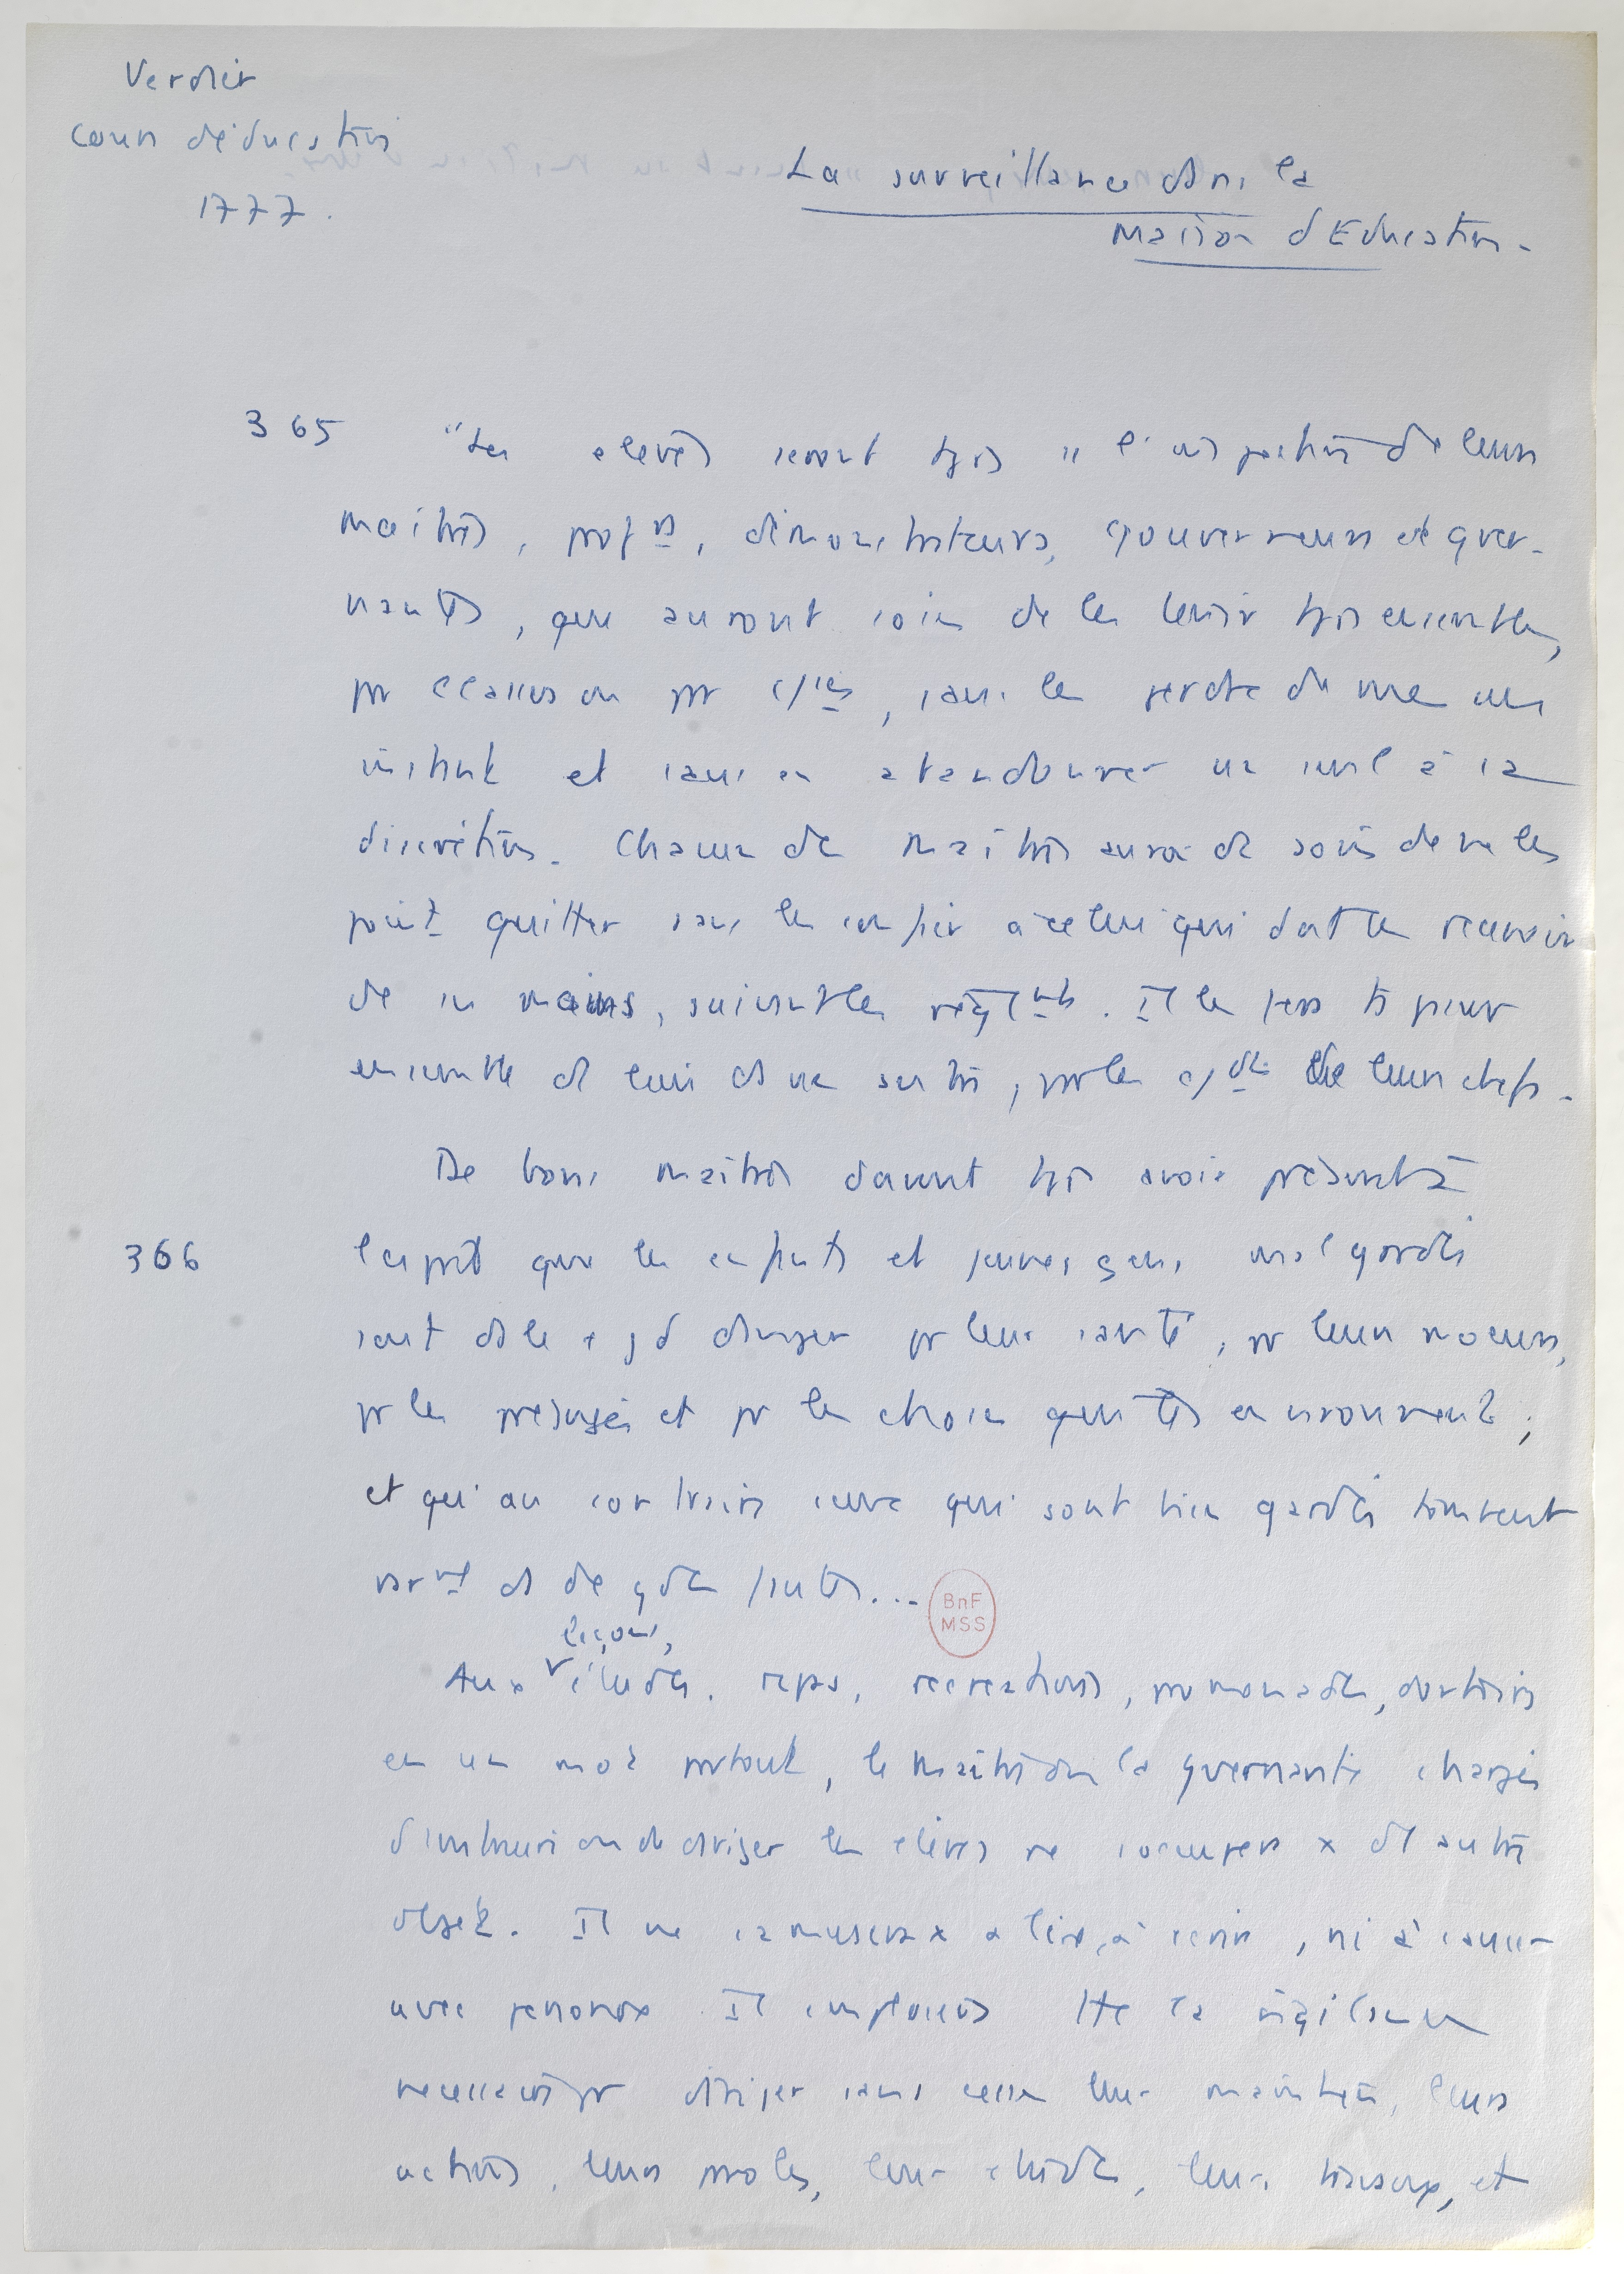 Verdier
Cours d'éducation
1777.
La surveillance ds la
Maison d'Education.
365 "Les élèves seront tjrs ss l'inspection de leurs
maîtres, profrs, démonstrateurs, gouverneurs et gver-
nantes, qui auront soin de les tenir tjrs ensembles,
pr classes ou pr cies, sans les perdre de vue un
instant et sans en abandonner un seul à sa
discrétion. Chacun des maîtres aura de soin de ne les
point quitter sans les confier à celui qui doit les recevoir
de ses mains, suivant les règlmts. Il les fera ts passer
ensemble d'un lieu ds un autre, pr les de leurs chefs.
De bons maîtres doivent tjrs avoir présent à
366 l'esprit que les enfants et jeunes gens mal gardés
sont ds le + gd danger pr leur santé, pr leurs moeurs,
pr les préjugés et pr les choses qui les environnent;
et qu'au contraire ceux qui sont bien gardés tombent
rart ds de gdes fautes...
leçons,
Aux études, repas, récréations, promenades, dortoirs
en un mot partout, le maître ou la gvernante chargés
d'instruire ou de diriger les élèves ne s'occupera x d'autre
objet. Il ne s'amusera x à lire, à écrire, ni à causer
avec personne. Il emploiera tte la vigilance
nécessaire pr diriger sans cesse leur maintien, leurs
actions, leurs proles, leurs études, leurs travaux, et
BnF
MSS